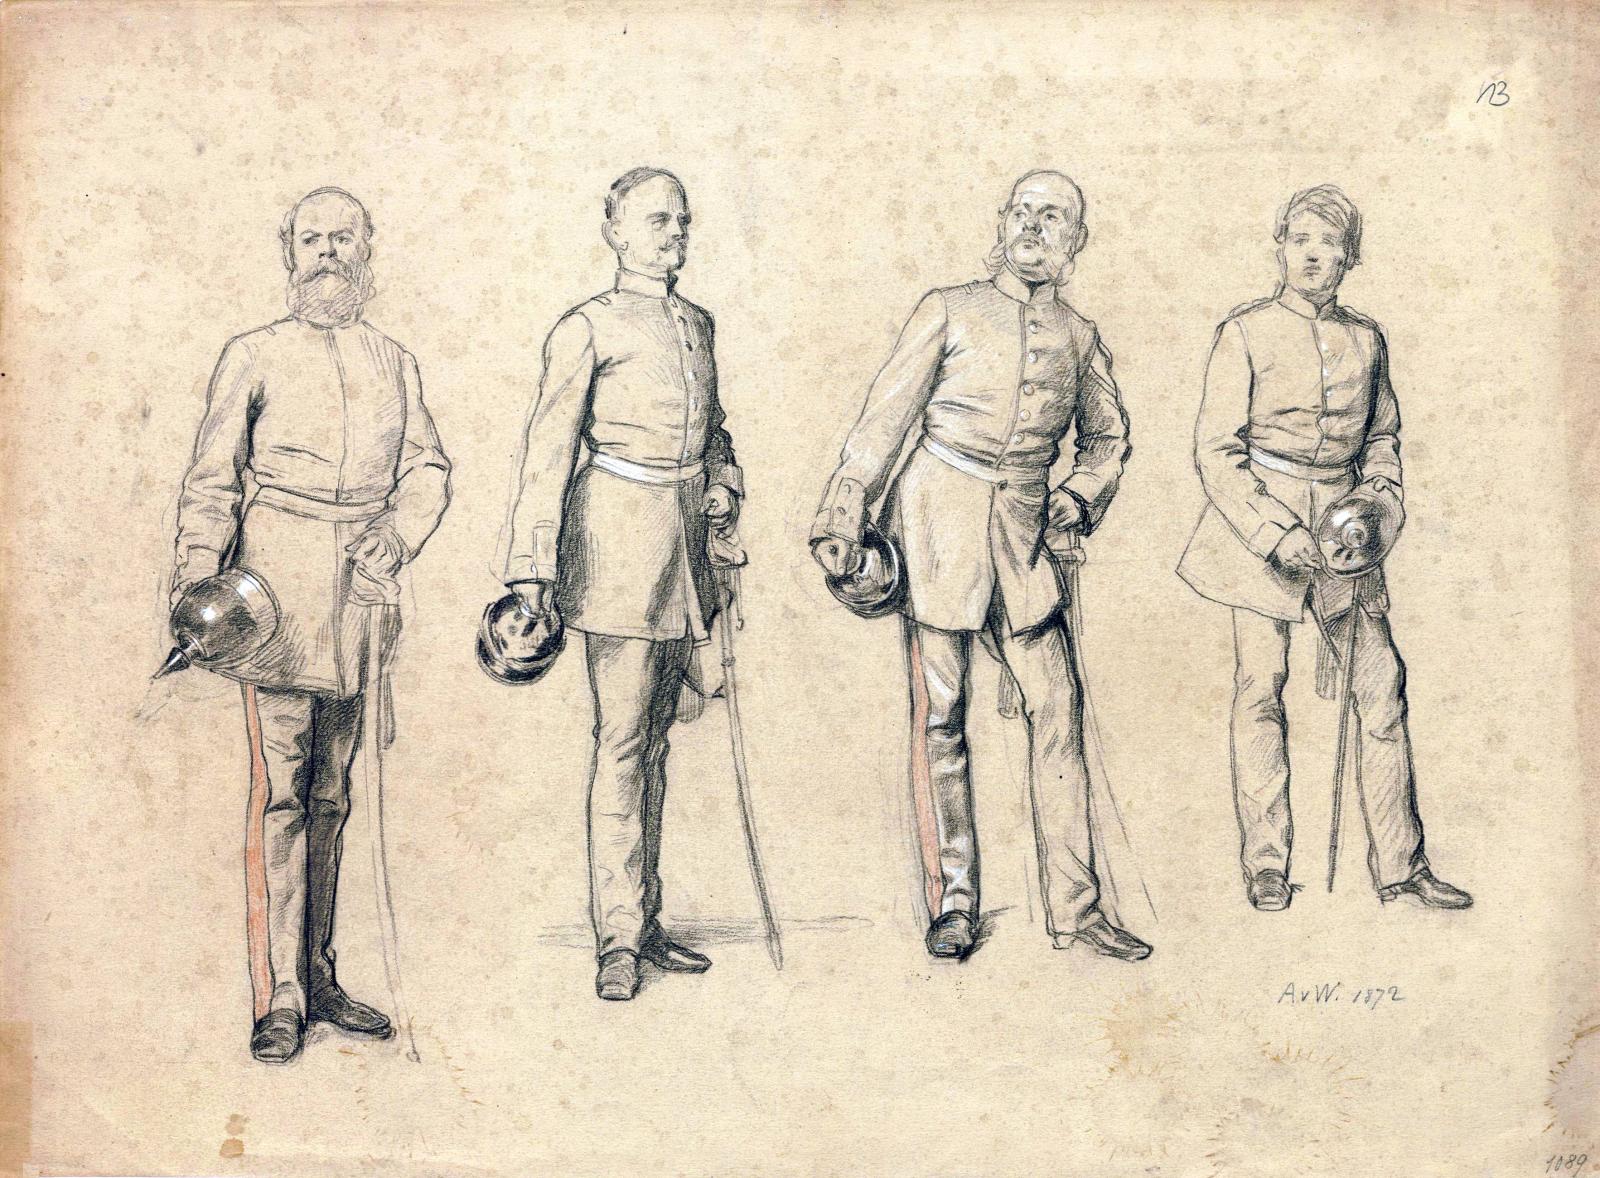 A v W. 1872
1089